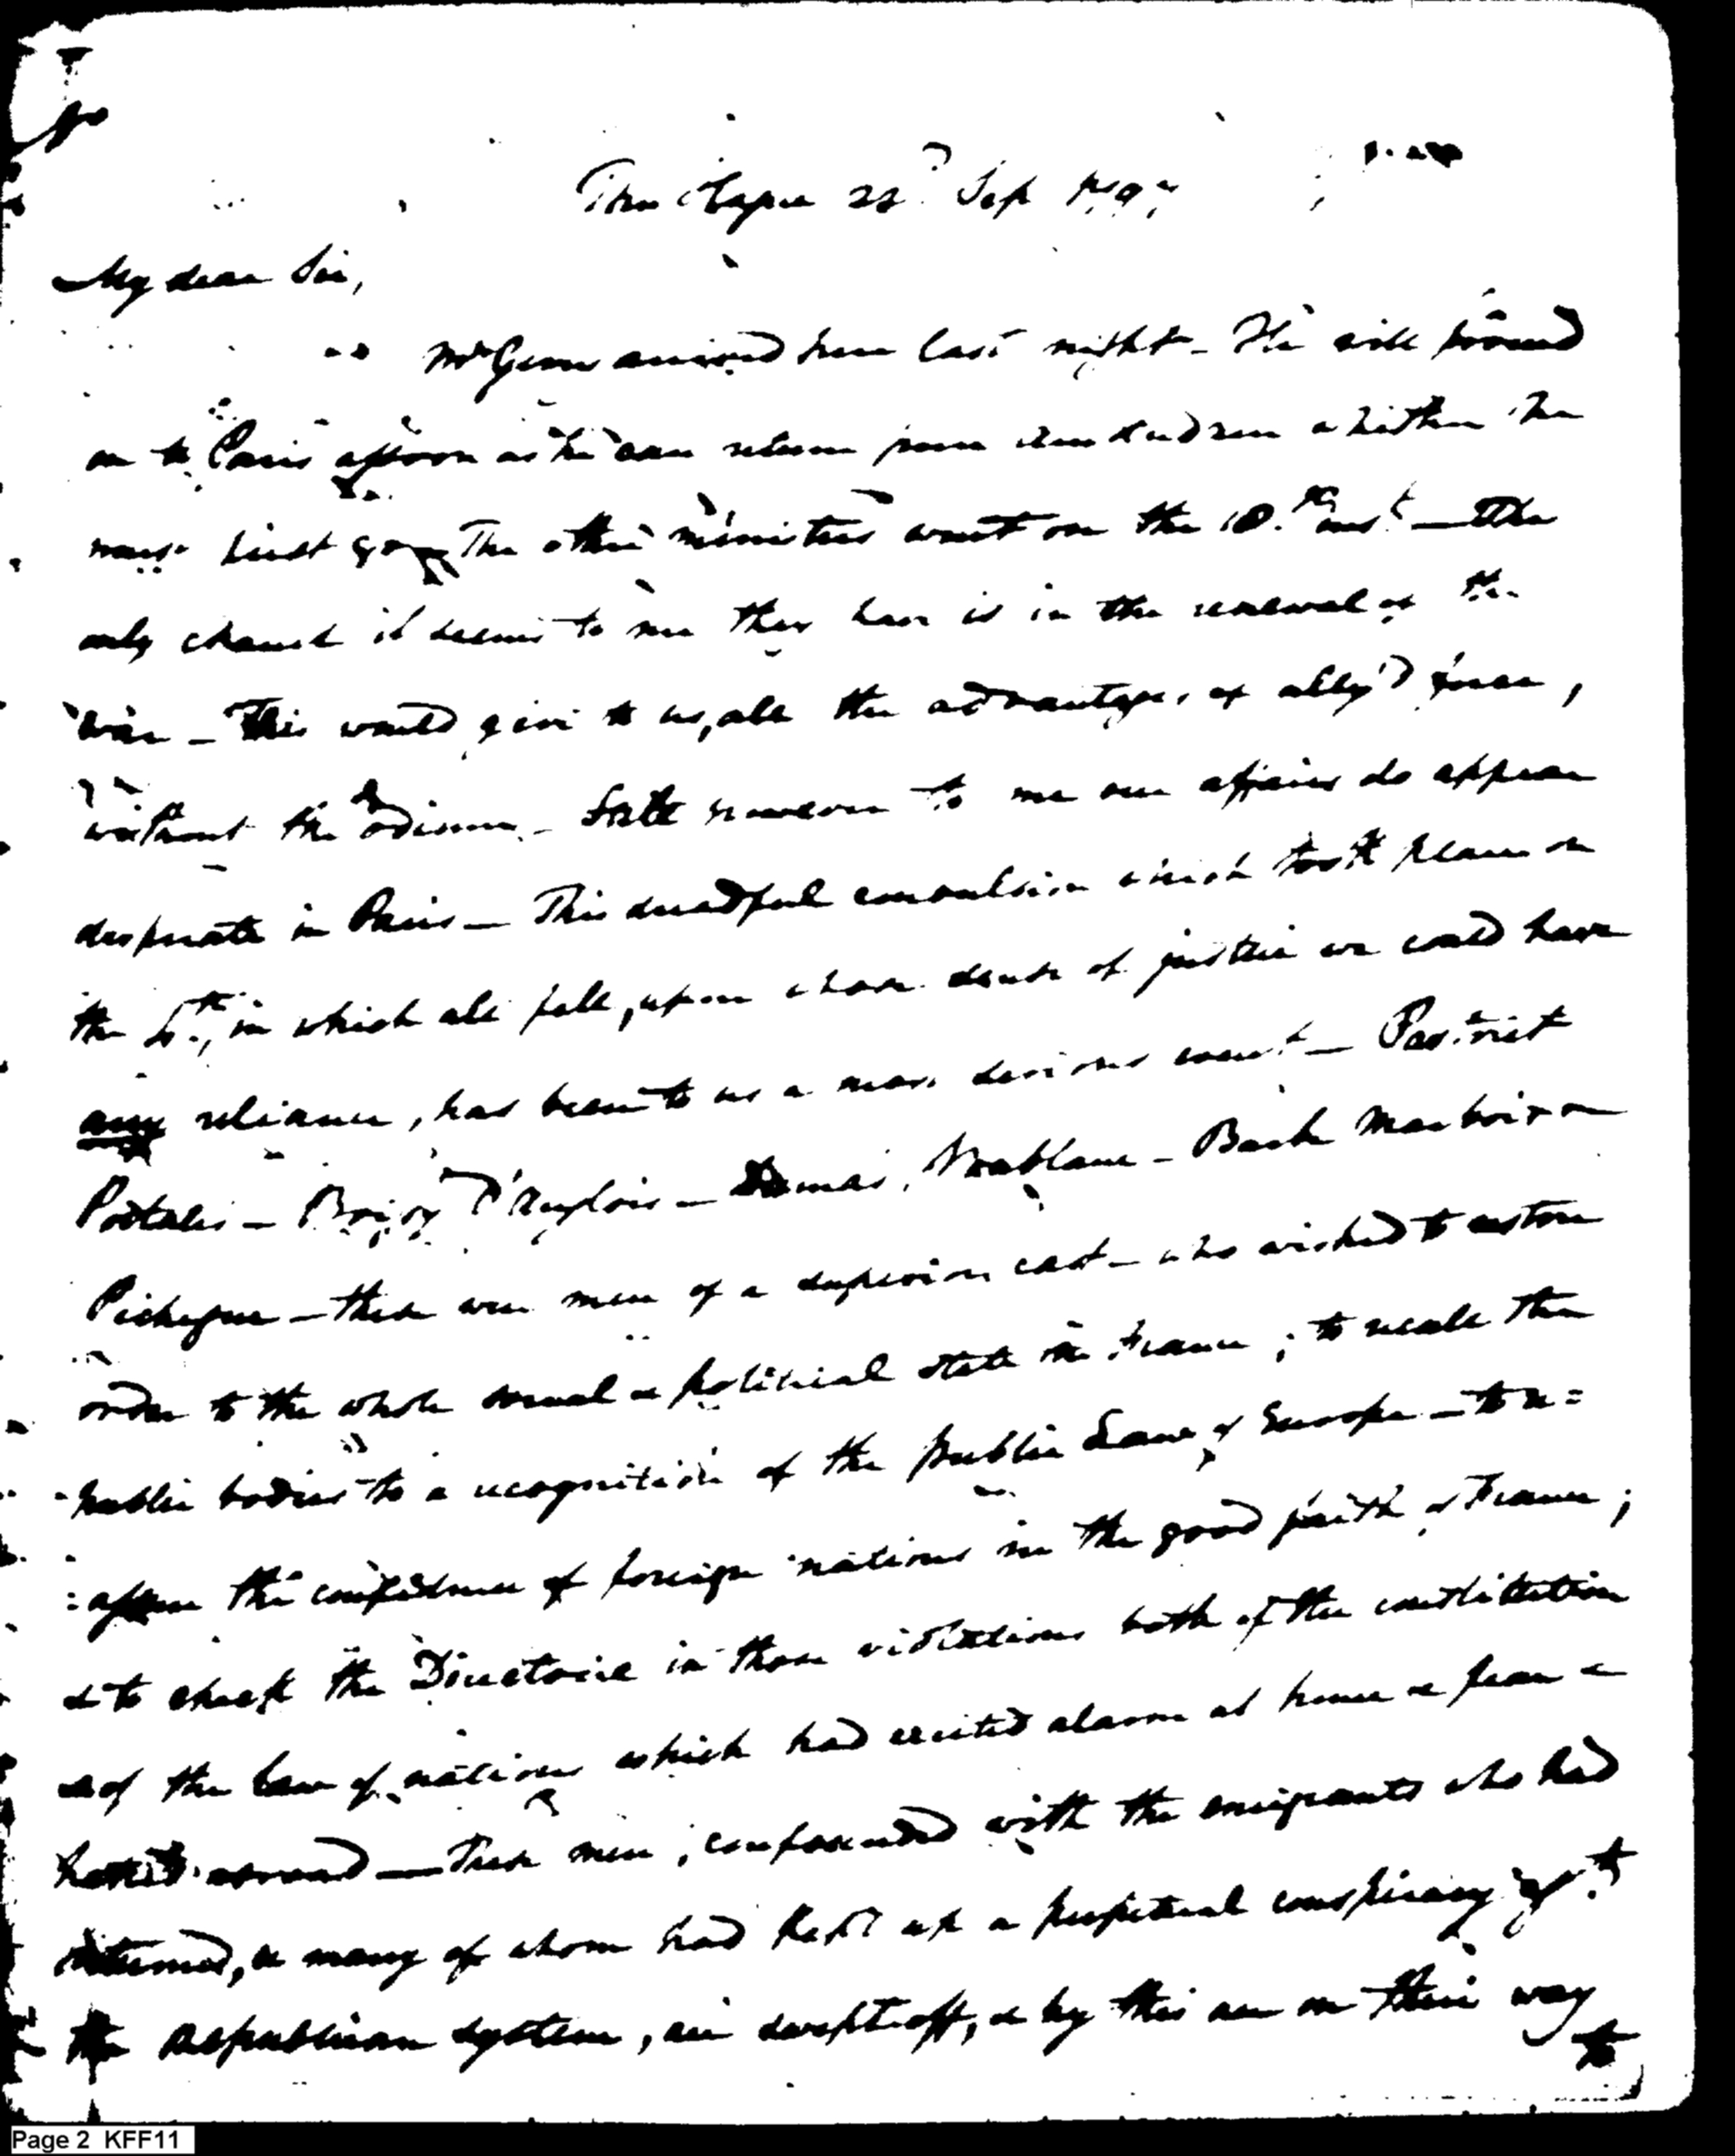 The Hague 22d Sep 1797
My dear Sir,
Mr Gerry arrived here last night - He will proceed
on to Paris as soon as he can return from whither he
must first go. The other ministers went on the 18.th inst - The
only chance it seems to me they have is in the renewal of the
War - This would give to us, all the advantages of ally'd force,
without the odium - however to me our affairs do appear
desperate in Paris - This dreadful convulsion which took place on
the 4th, in which all fell, upon whose sense of justice we could have
any reliance, has been to us a most serious event - Pastoret
Portalis - Boissy D'Anglois - Dumas, - Barbé Marbois &
Pichegru - these were men of a superior cast - who wished to restore
order to the whole moral & political state in France; to recall the
public bodies to a recognition of the public Law of Europe - to re=
=assure the confidence of foreign nations in the good faith of France;
& to check the Directoire in those violations both of the constitution
& of the law of nations which had excited alarm at home & fear &
hatred abroad - These men, confounded with the emigrants who had
returned, & many of whom had kept up a perpetual conspiracy agst
the republican system, are swept off, & by this are on their way
to
Page 2 KFF11